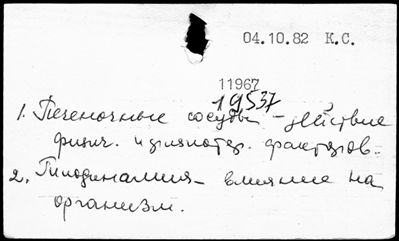 04.10.82 К.С.
11967
19537
1. Печеночные сосуды – действие
физич. и физиотер. факторов.
2. Гиподинамия – влияние на
организм.